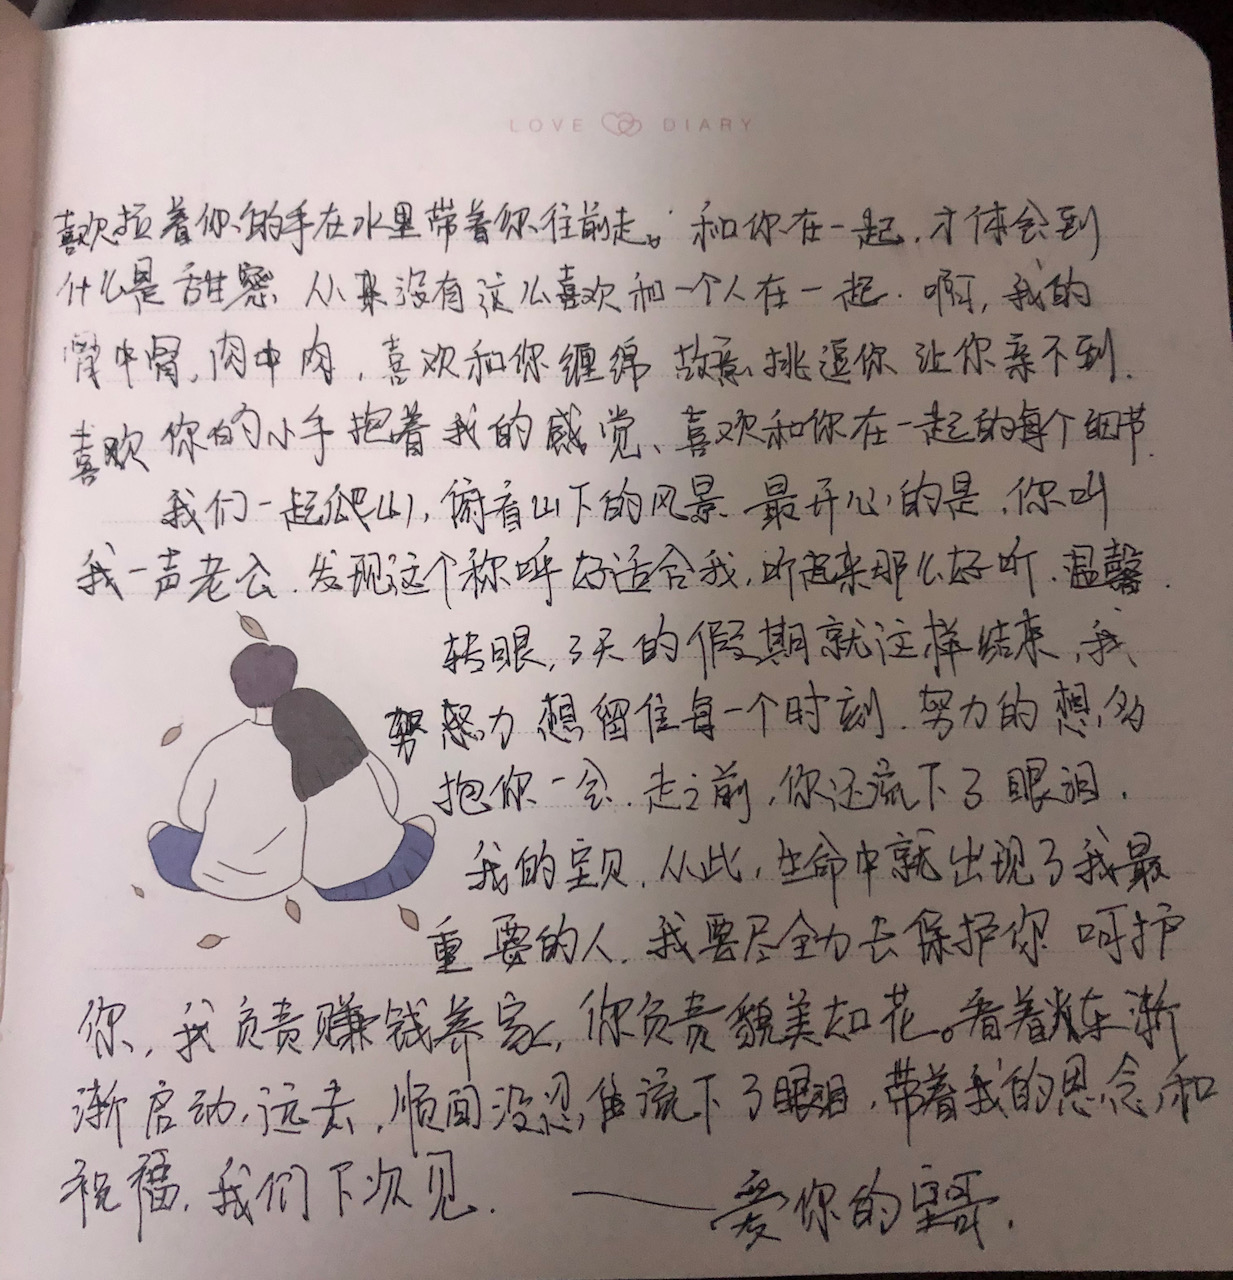 LOVE DIARY
喜欢拉着你的手在水里带着你往前走。和你在一起,才体会到
什么是甜蜜 从来没有这么喜欢和一个人在一起.啊,我的
骨中骨,肉中肉,喜欢和你缠绵 故意挑逗你 让你亲不到.
喜欢你的小手抱着我的感觉、喜欢和你在一起的每个细节.
我们一起爬山,俯看山下的风景.最开心的是,你叫
我一声老公.发现这个称呼好适合我,听起来那么好听.温馨.
转眼,3天的假期就这样结束,我
努力想留住每一个时刻.努力的想多
抱你一会.走之前,你还流下了眼泪.
我的宝贝.从此,生命中就出现了我最
重要的人.我要尽全力去保护你 呵护
你,我负责赚钱养家,你负责貌美如花。看着火车渐
渐启动,远去,顺间没忍住流下了眼泪,带着我的思念和
祝福.我们下次见.——爱你的宝哥.